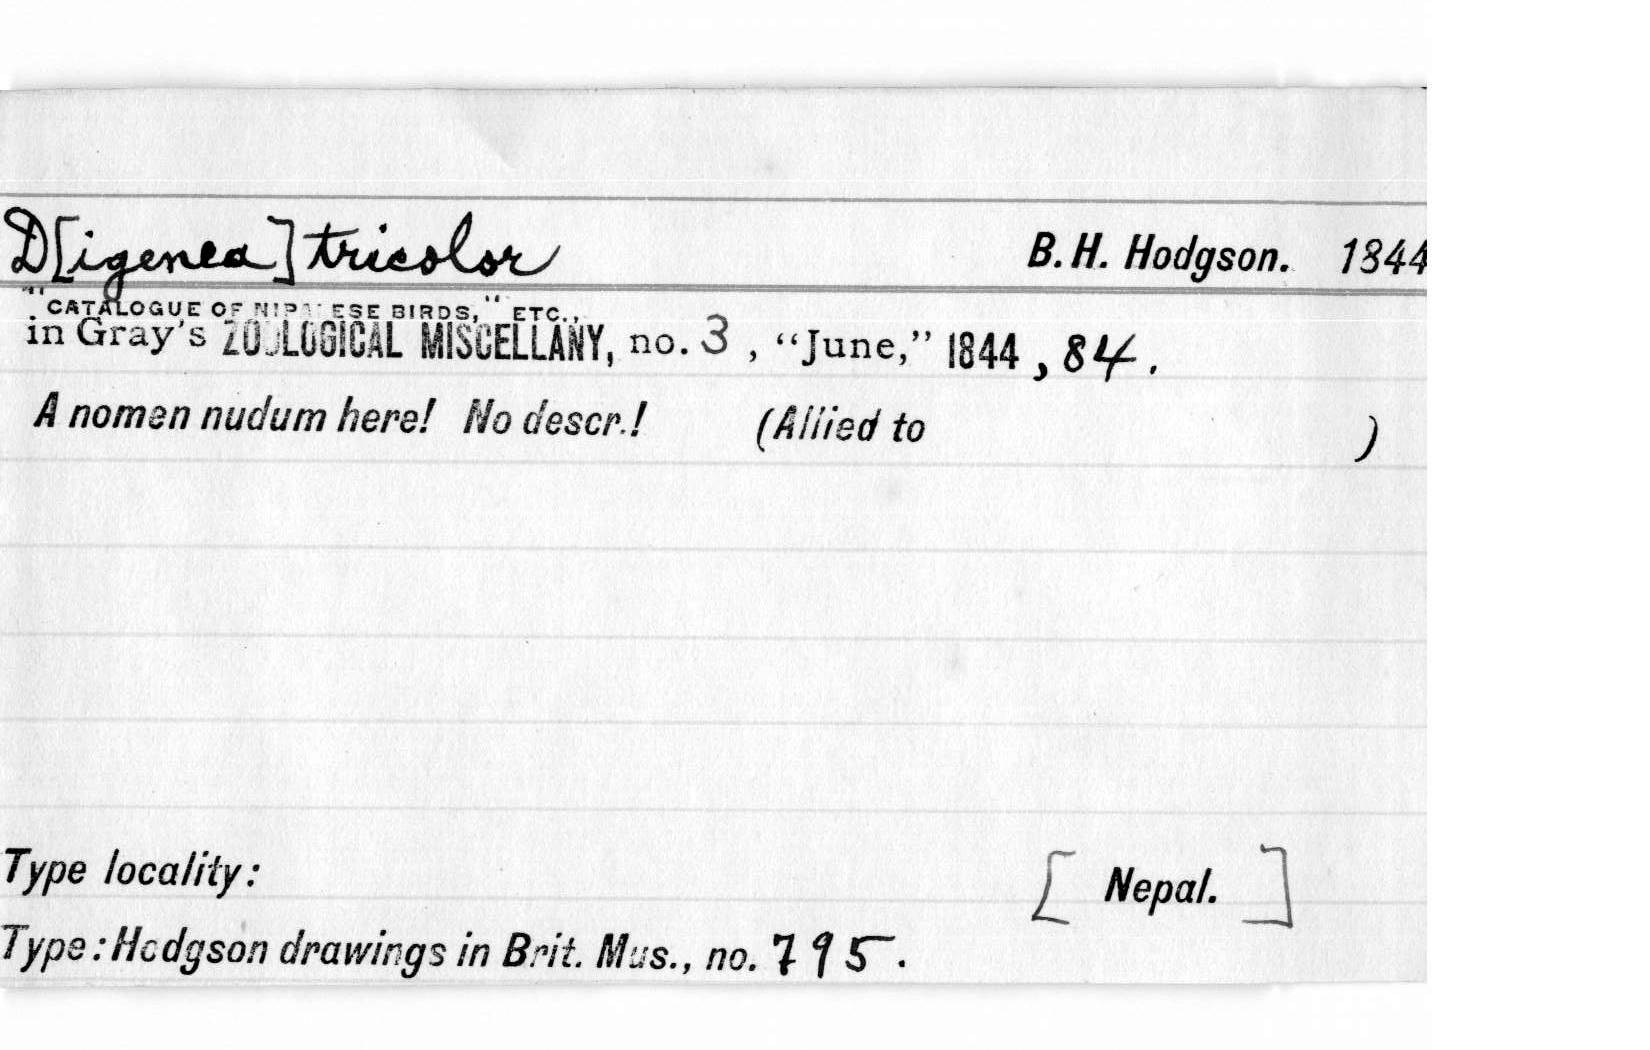 D[igenea] tricolor B. H. Hodgson. 1844
"CATALOGUE OF NIPALESE BIRDS," ETC.,
in Gray's ZOOLOGICAL MISCELLANY, no. 3, "June," 1844, 84.
A nomen nudum here! No descr.! (Allied to )
Type locality: [ Nepal. ]
Type: Hodgson drawings in Brit. Mus., no. 795.